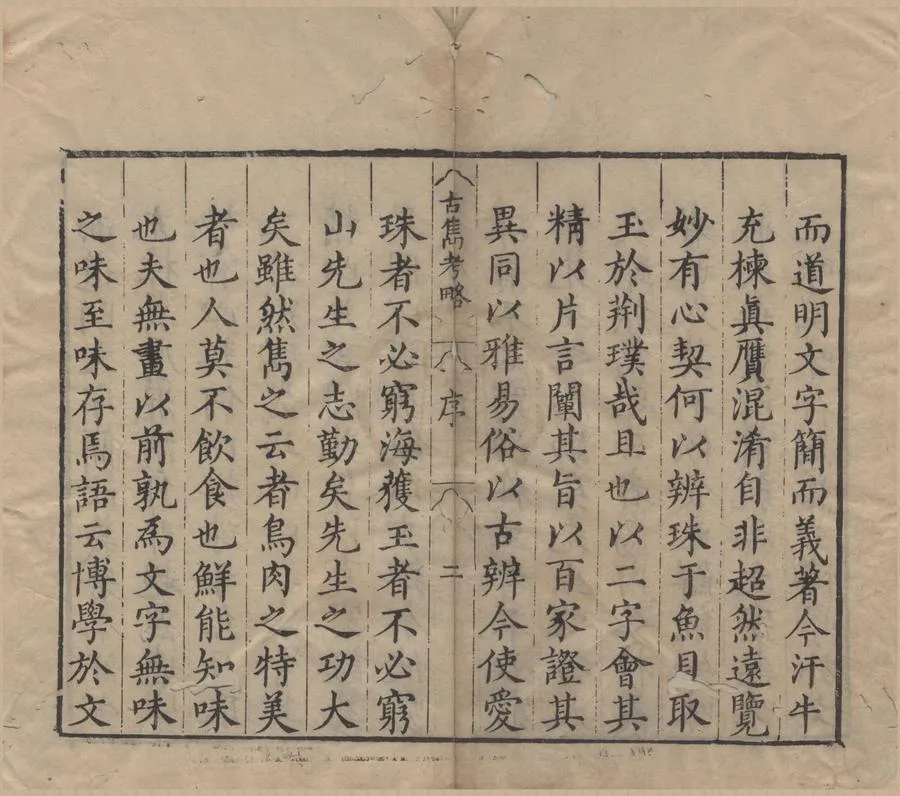 而道明文字簡而義著今汗牛
充棟眞贋混淆自非超然遠覽
妙有心契何以辨珠于魚目取
玉於荆璞哉且也以二字會其
精以片言闡其旨以百家證其
異同以雅易俗以古辨今使愛
古雋考略
序
二
珠者不必窮海獲玉者不必窮
山先生之志勤矣先生之功大
矣雖然雋之云者鳥肉之特美
者也人莫不飲食也鮮能知味
也夫無畫以前孰爲文字無味
之味至味存焉語云博學於文